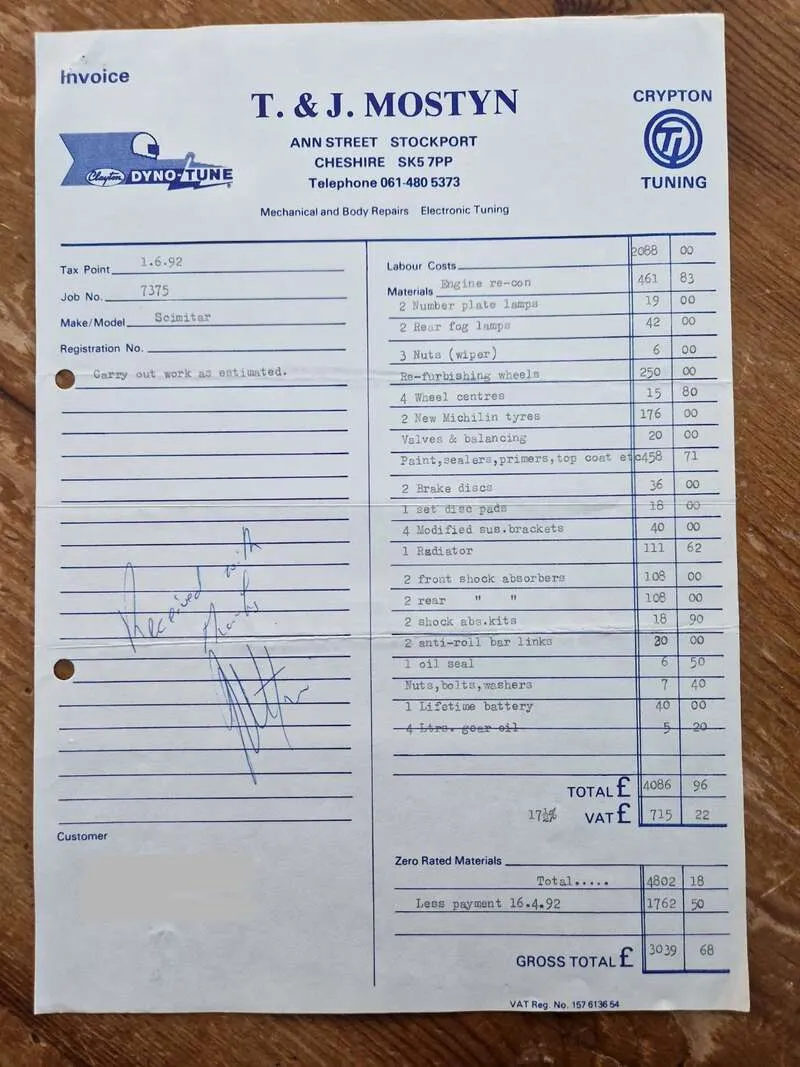 Invoice
T. & J. MOSTYN
ANN STREET STOCKPORT
CHESHIRE SK5 7PP
Telephone 061-480 5373
Mechanical and Body Repairs Electronic Tuning
Clayton DYNO-TUNE
CRYPTON
TUNING
Tax Point 1.6.92
Job No. 7375
Make/Model Scimitar
Registration No.
Carry out work as estimated.
Received with
thanks
Customer
Labour Costs 2088 00
Materials Engine re-con 461 83
2 Number plate lamps 19 00
2 Rear fog lamps 42 00
3 Nuts (wiper) 6 00
Re-furbishing wheels 250 00
4 Wheel centres 15 80
2 New Michilin tyres 176 00
Valves & balancing 20 00
Paint,sealers,primers,top coat etc 458 71
2 Brake discs 36 00
1 set disc pads 18 00
4 Modified sus.brackets 40 00
1 Radiator 111 62
2 front shock absorbers 108 00
2 rear " " 108 00
2 shock abs.kits 18 90
2 anti-roll bar links 00
1 oil seal 6 50
Nuts,bolts,washers 7 40
1 Lifetime battery 40 00
4 Ltrs. gear oil 5 20
TOTAL £ 4086 96
17½% VAT £ 715 22
Zero Rated Materials
Total..... 4802 18
Less payment 16.4.92 1762 50
GROSS TOTAL £ 3039 68
VAT Reg. No. 157 6136 54